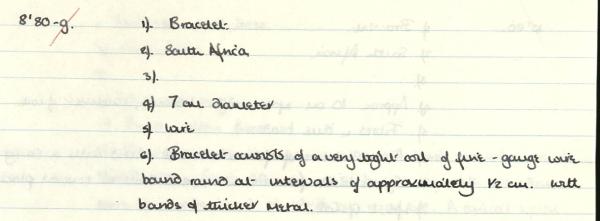 8'80-g. 1). Bracelet.
2). South Africa
3).
4) 7 cm diameter
5) wire
6). Bracelet consists of a very tight coil of fine-gauge wire
bound round at intervals of approximately 1/2 cm. with
bands of thicker metal.